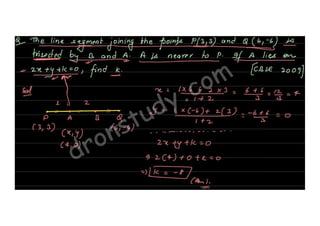 Q. The line segment joining the points P(3,3) and Q(6,-6) is
trisected by B and A. A is nearer to P. If A lies on
2x+y+k=0, find k. [CBSE 2009]
Sol
1 2
P A B Q
(3,3) (x,y)
x = = 6+6/3 = 12/3 = 4
1+2
1×(-6)+2(3)/1+2 = -6+6/3 = 0
2x+y+k=0
⇒ 2(4)+0+k=0
⇒ k = -8
(Ans).
dronstudy.com